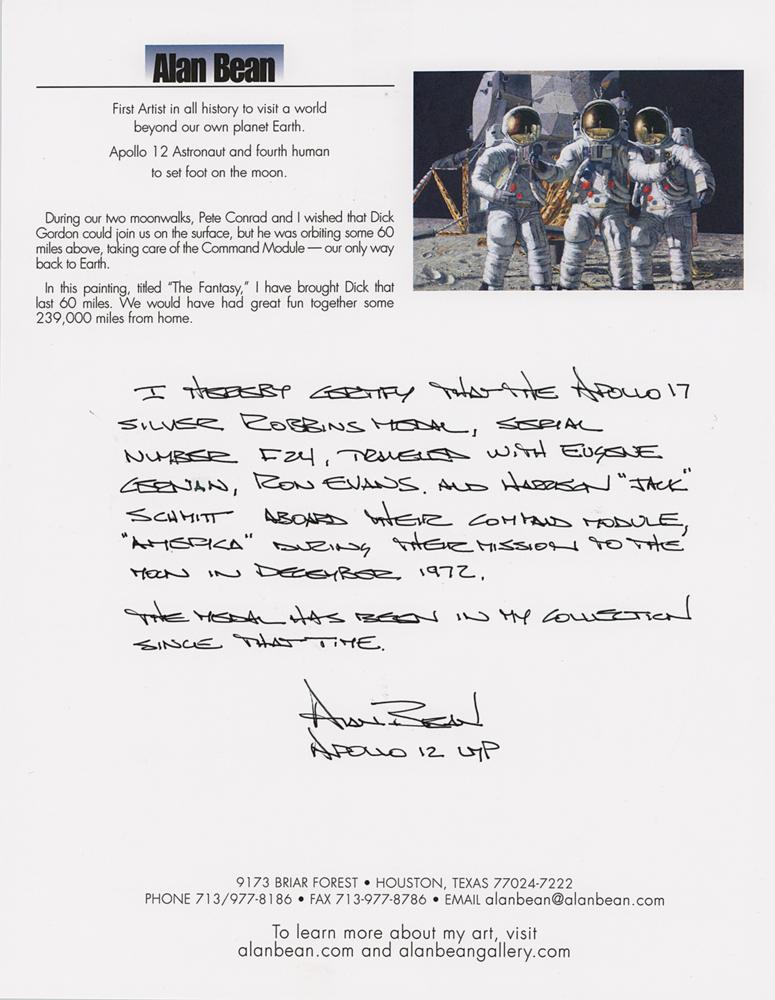 Alan Bean
First Artist in all history to visit a world
beyond our own planet Earth.
Apollo 12 Astronaut and fourth human
to set foot on the moon.
During our two moonwalks, Pete Conrad and I wished that Dick
Gordon could join us on the surface, but he was orbiting some 60
miles above, taking care of the Command Module — our only way
back to Earth.
In this painting, titled "The Fantasy," I have brought Dick that
last 60 miles. We would have had great fun together some
239,000 miles from home.
I HEREBY CERTIFY THAT THE APOLLO 17
SILVER ROBBINS MEDAL, SERIAL
NUMBER F24, TRAVELED WITH EUGENE
CERNAN, RON EVANS, AND HARRISON "JACK"
SCHMITT ABOARD THEIR COMMAND MODULE,
"AMERICA" DURING THEIR MISSION TO THE
MOON IN DECEMBER 1972.
THE MEDAL HAS BEEN IN MY COLLECTION
SINCE THAT TIME.
ALAN BEAN
APOLLO 12 LMP
9173 BRIAR FOREST • HOUSTON, TEXAS 77024-7222
PHONE 713/977-8186 • FAX 713-977-8786 • EMAIL alanbean@alanbean.com
To learn more about my art, visit
alanbean.com and alanbeangallery.com